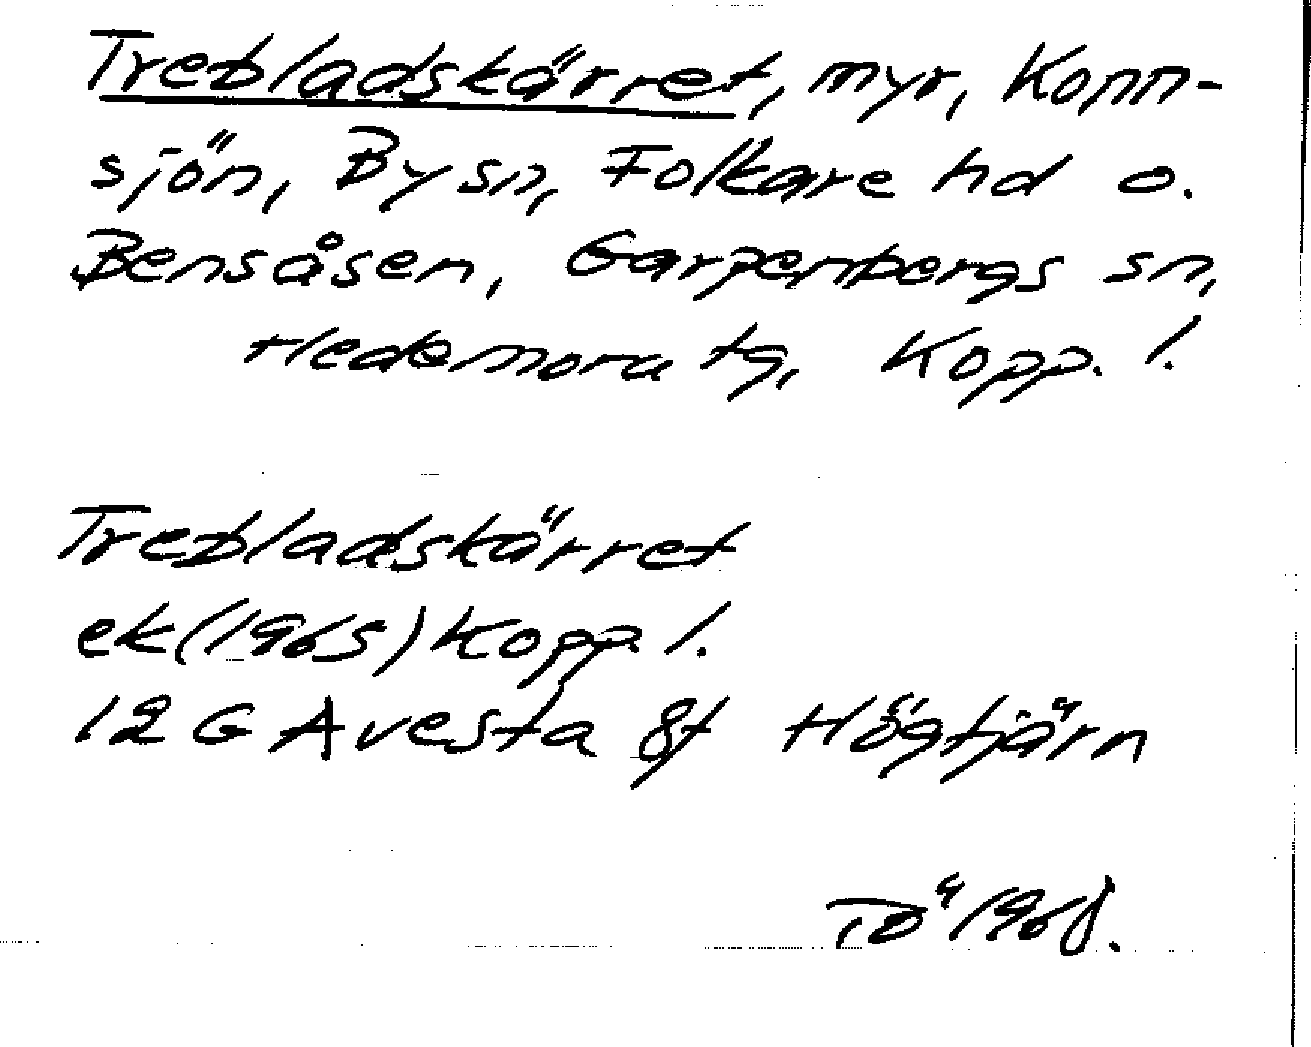 Trebladskärret, myr, Konn-
sjön, By sn, Folkare hd o.
Bensåsen, Garpenbergs sn,
Hedemora tg, Kopp. l.
Trebladskärret
ek (1965) Kopp l.
12 G Avesta 8f Högtjärn
TÖ 1968.